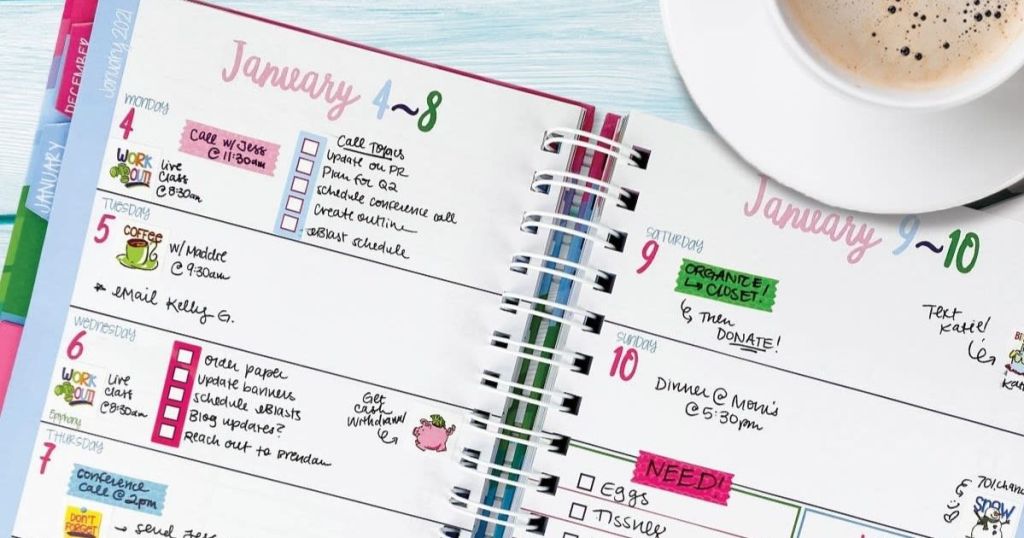 DECEMBER
January 2021
JANUARY
January 4~8
MONDAY
4
WORK
OUT
Live
Class
@ 8:30am
Call w/ Jess
@ 11:30am
Call Topics
Update on PR
Plan for Q2
schedule conference call
Create outline
eBlast schedule
TUESDAY
5
COFFEE
w/ Maddie
@ 9:30am
* eMail Kelly G.
WEDNESDAY
6
WORK
OUT
Live
Class
@ 8:30am
Epiphany
order paper
Update banners
schedule eBlasts
Blog updates?
Reach out to Brendan
Get
Cash
Withdrawal
THURSDAY
7
Conference
Call @ 2pm
DON'T
FORGET
→ send
January 9~10
SATURDAY
9
ORGANIZE!
↳ CLOSET!
↳ Then
DONATE!
Text
Katie!
SUNDAY
10
Dinner @ Mom's
@ 5:30pm
NEED!
EGGS
TISSUES
SNOW